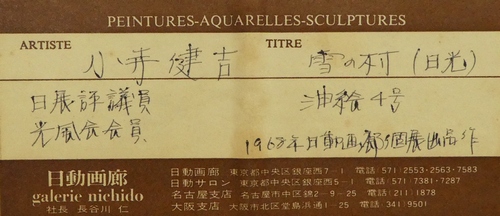 PEINTURES-AQUARELLES-SCULPTURES
ARTISTE
TITRE
小寺健吉
雪の村(日光)
日展評議員
油絵4号
光風会会員
1968年日動画廊個展出品作
日動画廊
galerie nichido
社長 長谷川 仁
日動画廊 東京都中央区銀座西7-1 電話(571)2553・2563・7583
日動サロン 東京都中央区銀座西5-1 電話(571)7381・7287
名古屋支店 名古屋市中区錦2-9-25 電話(211)1878
大阪支店 大阪市北区堂島浜通1-25 電話 341)9501